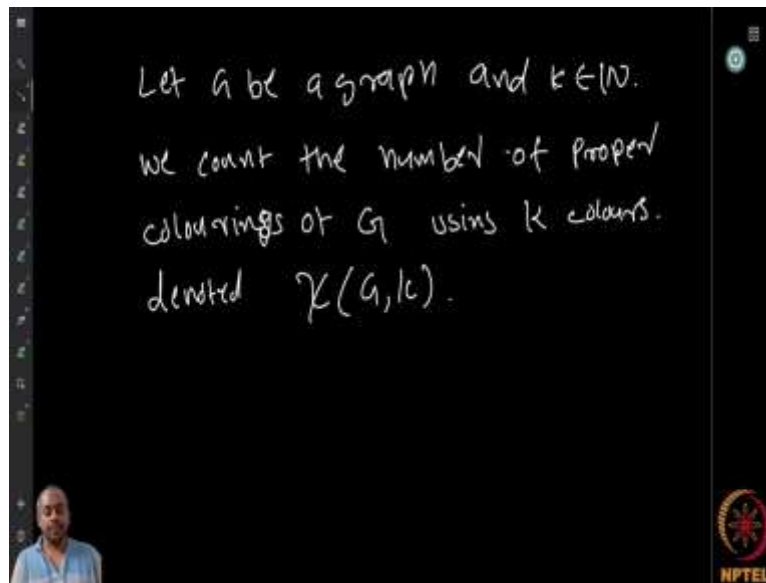 Let G be a graph and k ∈ ℕ.
we count the number of proper
colourings of G using k colours.
denoted χ(G, k).
NPTEL